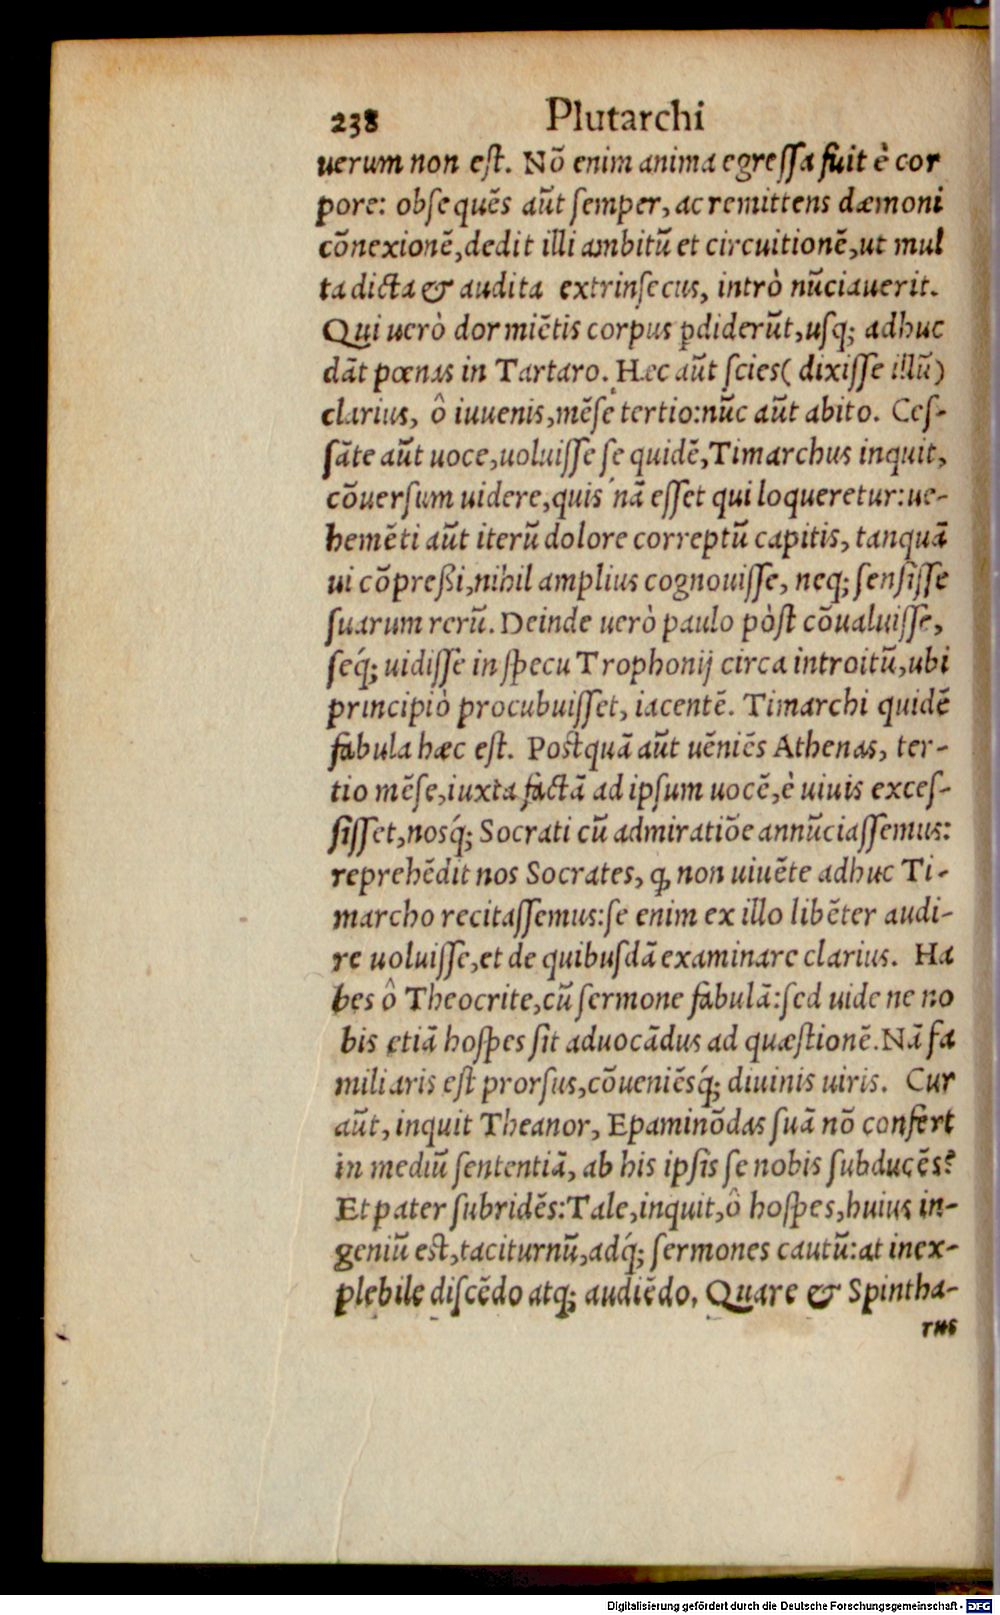 238 Plutarchi
uerum non est. Nõ enim anima egressa fuit è cor
pore: obsequẽs aũt semper, ac remittens dæmoni
cõnexionẽ, dedit illi ambitũ et circuitionẽ, ut mul
ta dicta & audita extrinsecus, intrò nũciauerit.
Qui uerò dormiẽtis corpus ꝑdiderũt, usq; adhuc
dãt pœnas in Tartaro. Hæc aũt scies( dixisse illũ)
clarius, ô iuuenis, mẽse tertio: nũc aũt abito. Ces-
sãte aũt uoce, uoluisse se quidẽ, Timarchus inquit,
cõuersum uidere, quis nã esset qui loqueretur: ue-
hemẽti aũt iterũ dolore correptũ capitis, tanquã
ui cõpreßi, nihil amplius cognouisse, neq; sensisse
suarum rerũ. Deinde uerò paulo pòst cõualuisse,
seq́; uidisse in specu Trophonij circa introitũ, ubi
principiò procubuisset, iacentẽ. Timarchi quidẽ
fabula hæc est. Postquã aũt uẽniẽs Athenas, ter-
tio mẽse, iuxta factã ad ipsum uocẽ, è uiuis exces-
sisset, nosq́; Socrati cũ admiratiõe annũciassemus:
reprehẽdit nos Socrates, ꝙ non uiuẽte adhuc Ti-
marcho recitassemus: se enim ex illo libẽter audi-
re uoluisse, et de quibusdã examinare clarius. Ha
bes ô Theocrite, cũ sermone fabulã: sed uide ne no
bis etiã hospes sit aduocãdus ad quæstionẽ. Nã fa
miliaris est prorsus, cõueniẽsq́; diuinis uiris. Cur
aũt, inquit Theanor, Epaminõdas suã nõ confert
in mediũ sententiã, ab his ipsis se nobis subducẽs?
Et pater subridẽs: Tale, inquit, ô hospes, huius in-
geniũ est, taciturnũ, adq́; sermones cautũ: at inex-
plebile discẽdo atq; audiẽdo. Quare & Spintha-
rus
Digitalisierung gefördert durch die Deutsche Forschungsgemeinschaft - DFG